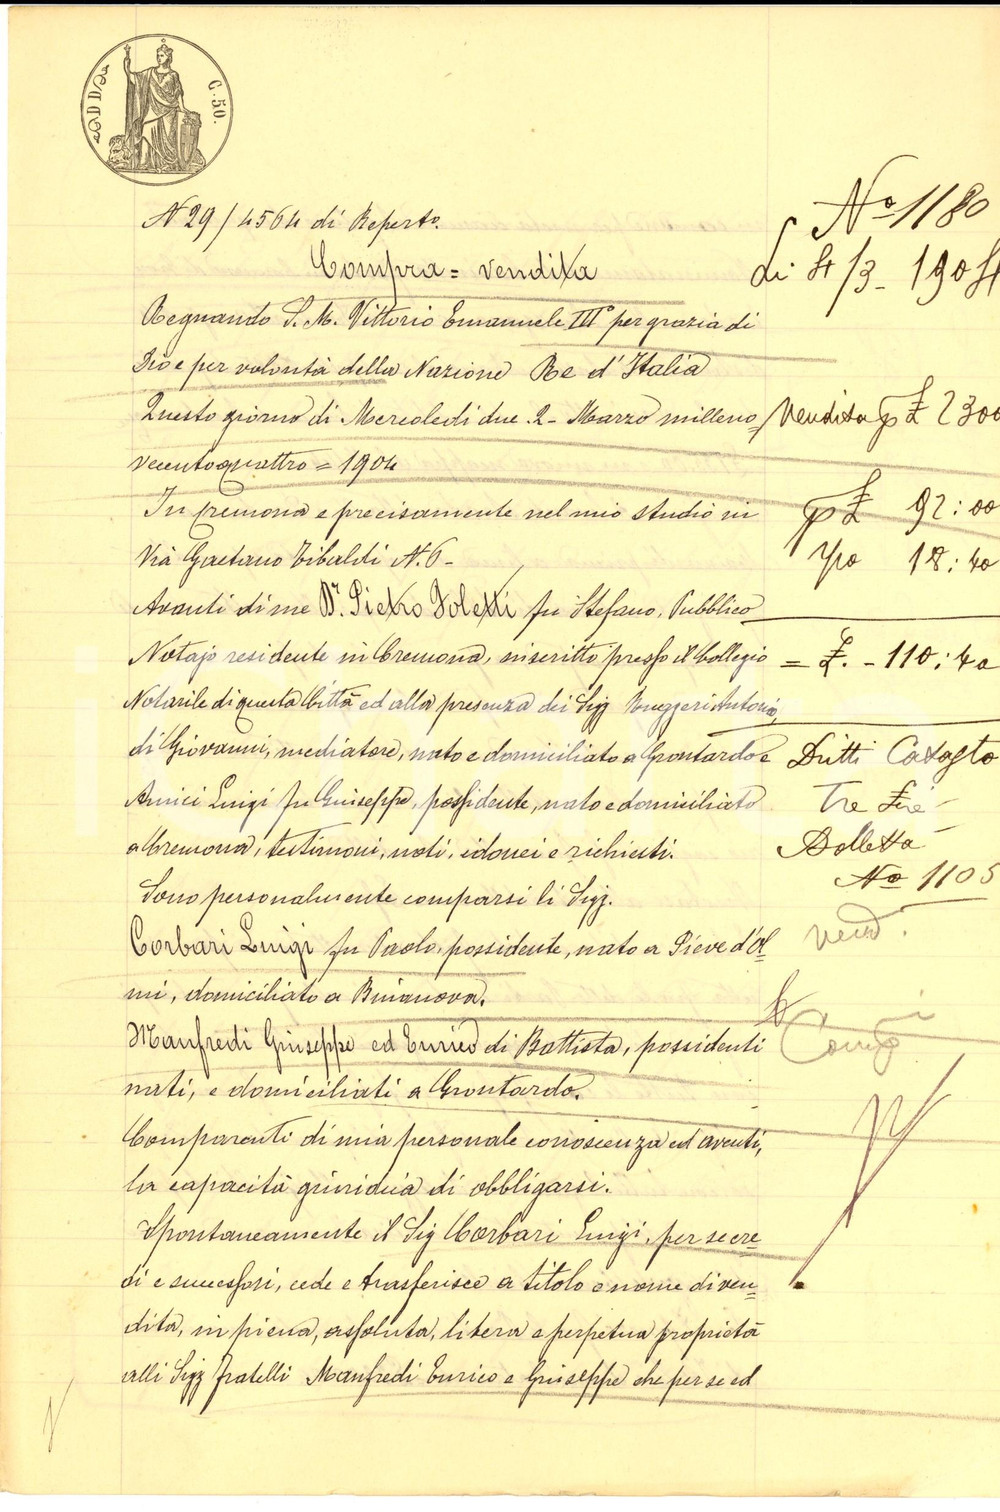 C. 50.
N 29/4564 di Reperto.
Compra = vendita
Regnando S. M. Vittorio Emanuele III° per grazia di
Dio e per volontà della Nazione Re d'Italia
Questo giorno di Mercoledi due .2- Marzo milleno=
vecentoquattro = 1904
In Cremona e precisamente nel mio studio in
Via Gaetano Tibaldi N. 6-
Avanti di me Dr. Pietro Foletti fu Stefano, Pubblico
Notajo residente in Cremona, inscritto presso il Collegio
Notarile di questa Città ed alla presenza dei Sigg Ruggeri Antonio,
di Giovanni, mediatore, nato e domiciliato a Grontardo e
Amici Luigi fu Giuseppe, possidente, nato e domiciliato
a Cremona, testimoni, noti, idonei e richiesti.
Sono personalmente comparsi li Sigg.
Corbari Luigi fu Paolo, possidente, nato a Pieve d'Ol-
mi, domiciliato a Buianova.
Manfredi Giuseppe ed Enrico di Battista, possidenti
nati, e domiciliati a Grontardo.
Comparenti di mia personale conoscenza ed aventi,
la capacità giuridica di obbligarsi.
Spontaneamente il Sig Corbari Luigi, per se ere-
di e successori, cede e trasferisce a titolo e nome di ven-
dita, in piena, assoluta, libera e perpetua proprietà
alli Sigg fratelli Manfredi Enrico e Giuseppe che per se ed
No 1180
di 4/3- 1904
Vendita p £ 2300
p £ 92:00
1/10 18:40
= £. - 110:40
Dritti Catasto
Tre Lire-
Bolletta
No 1105
vend.